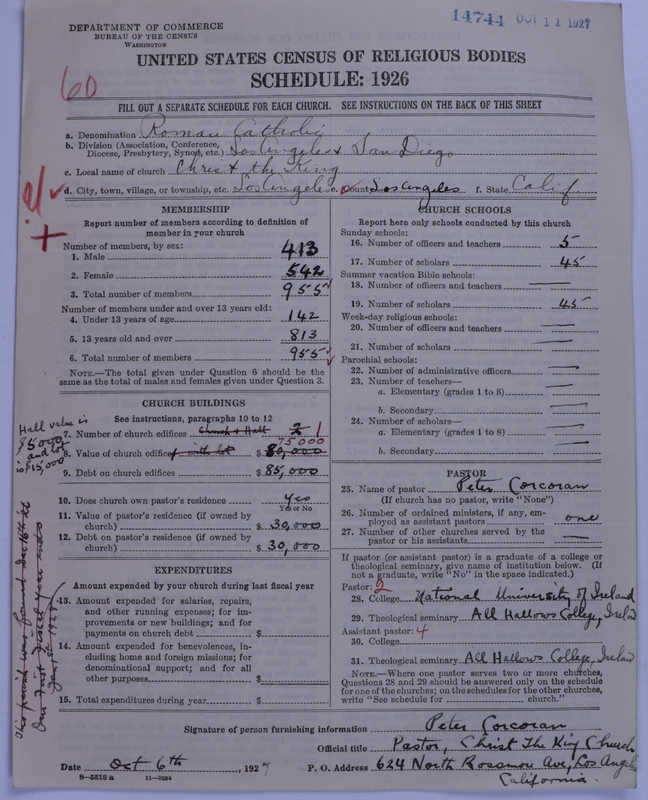 14744 OCT 11 1927
DEPARTMENT OF COMMERCE
BUREAU OF THE CENSUS
WASHINGTON
UNITED STATES CENSUS OF RELIGIOUS BODIES
SCHEDULE: 1926
60
FILL OUT A SEPARATE SCHEDULE FOR EACH CHURCH. SEE INSTRUCTIONS ON THE BACK OF THIS SHEET
a. Denomination Roman Catholic
b. Division (Association, Conference, Diocese, Presbytery, Synod, etc.) Los Angeles & San Diego
c. Local name of church Christ the King
d. City, town, village, or township, etc. Los Angeles e. County Los Angeles f. State Calif
MEMBERSHIP
Report number of members according to definition of
member in your church
Number of members, by sex:
1. Male 413
2. Female 542
3. Total number of members 955
Number of members under and over 13 years old:
4. Under 13 years of age 142
5. 13 years old and over 813
6. Total number of members 955
NOTE.—The total given under Question 6 should be
same as the total of males and females given under Question 3.
CHURCH BUILDINGS
See instructions, paragraphs 10 to 12
Hall value is
$5000
and lot
is $15,000
7. Number of church edifices Church & Hall 2 1
75000
8. Value of church edifices with lot $ 80,000
9. Debt on church edifices $ 85,000
10. Does church own pastor's residence Yes
Yes or No
11. Value of pastor's residence (if owned by
church) $ 30,000
12. Debt on pastor's residence (if owned by
church) $ 30,000
EXPENDITURES
Amount expended by your church during last fiscal year
13. Amount expended for salaries, repairs,
and other running expenses; for im-
provements or new buildings; and for
payments on church debt $
14. Amount expended for benevolences, in-
cluding home and foreign missions; for
denominational support; and for all
other purposes $
15. Total expenditures during year $
This parish was formed Dec 16th
Our first fiscal year ends
Jan 1st 1928
CHURCH SCHOOLS
Report here only schools conducted by this church
Sunday schools:
16. Number of officers and teachers 5
17. Number of scholars 45
Summer vacation Bible schools:
18. Number of officers and teachers —
19. Number of scholars 45
Week-day religious schools:
20. Number of officers and teachers —
21. Number of scholars —
Parochial schools:
22. Number of administrative officers —
23. Number of teachers—
a. Elementary (grades 1 to 8) —
b. Secondary —
24. Number of scholars—
a. Elementary (grades 1 to 8) —
b. Secondary —
PASTOR
25. Name of pastor Peter Corcoran
(If church has no pastor, write "None")
26. Number of ordained ministers, if any, em-
ployed as assistant pastors one
27. Number of other churches served by the
pastor or his assistants —
If pastor (or assistant pastor) is a graduate of a college or
theological seminary, give name of institution below. (If
not a graduate, write "No" in the space indicated.)
Pastor: 2
28. College National University of Ireland
29. Theological seminary All Hallows College, Irelan
Assistant pastor: 4
30. College
31. Theological seminary All Hallows College, Ireland
NOTE.—Where one pastor serves two or more churches,
Questions 28 and 29 should be answered only on the schedule
for one of the churches; on the schedules for the other churches,
write "See schedule for church."
Signature of person furnishing information Peter Corcoran
Official title Pastor, Christ The King Church
Date Oct 6th, 1927 P. O. Address 624 North Rossmore Ave, Los Angeles
California.
8—5518 a 11—9064